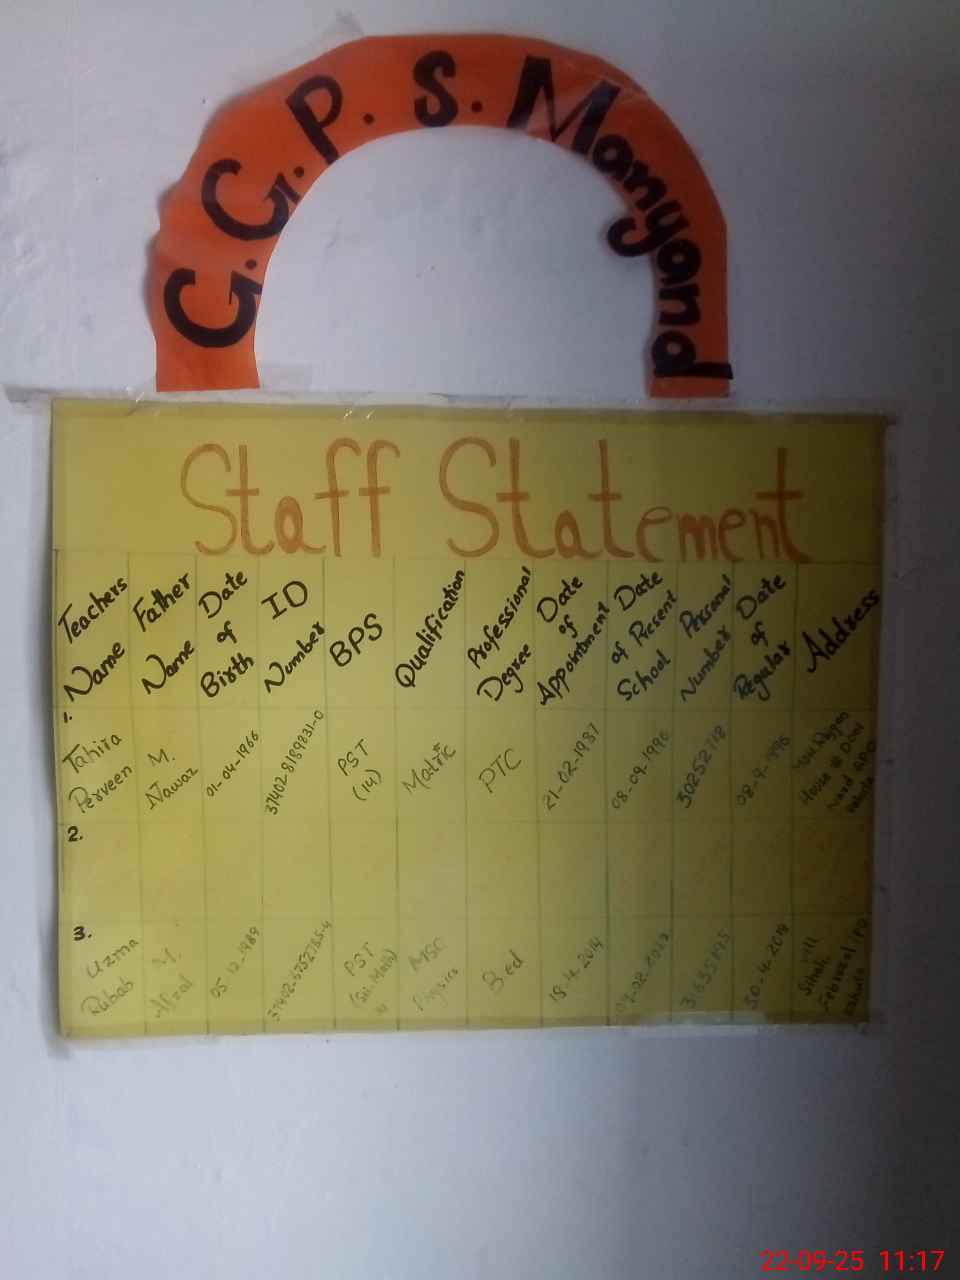 G.G.P.S. Manyand
Staff Statement
Teachers Name
Father Name
Date of Birth
ID Number
BPS
Qualification
Professional Degree
Date of Appointment
Date of Present School
Personal Number
Date of Regular
Address
1.
Tahira Perveen
M. Nawaz
01-04-1966
37402-8189831-0
PST (14)
Matric
PTC
21-02-1987
08-09-1996
30252718
08-9-1996
House
2.
3.
Uzma Rubab
M. Afzal
05-12-1989
PST (Sci-Math)
MSC Physics
Bed
18-4-2014
30-4-2018
Vill Sihali
22-09-25 11:17